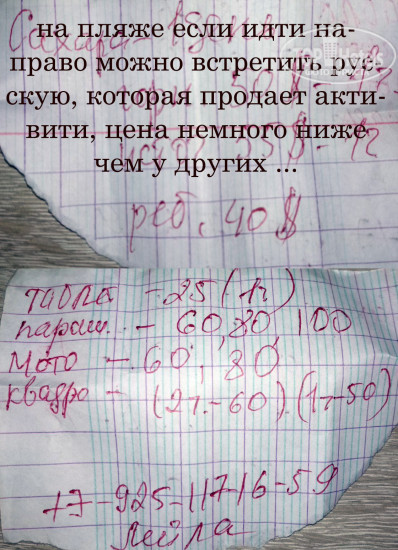 на пляже если идти на-
право можно встретить рус-
скую, которая продает акти-
вити, цена немного ниже
чем у других ...
Сахара
реб. 40$
- 25 (1ч)
параш. - 60, 80, 100
мото - 60, 80,
квадро - (2ч-60) (1ч-50)
+7-925-117-16-59
Лейла